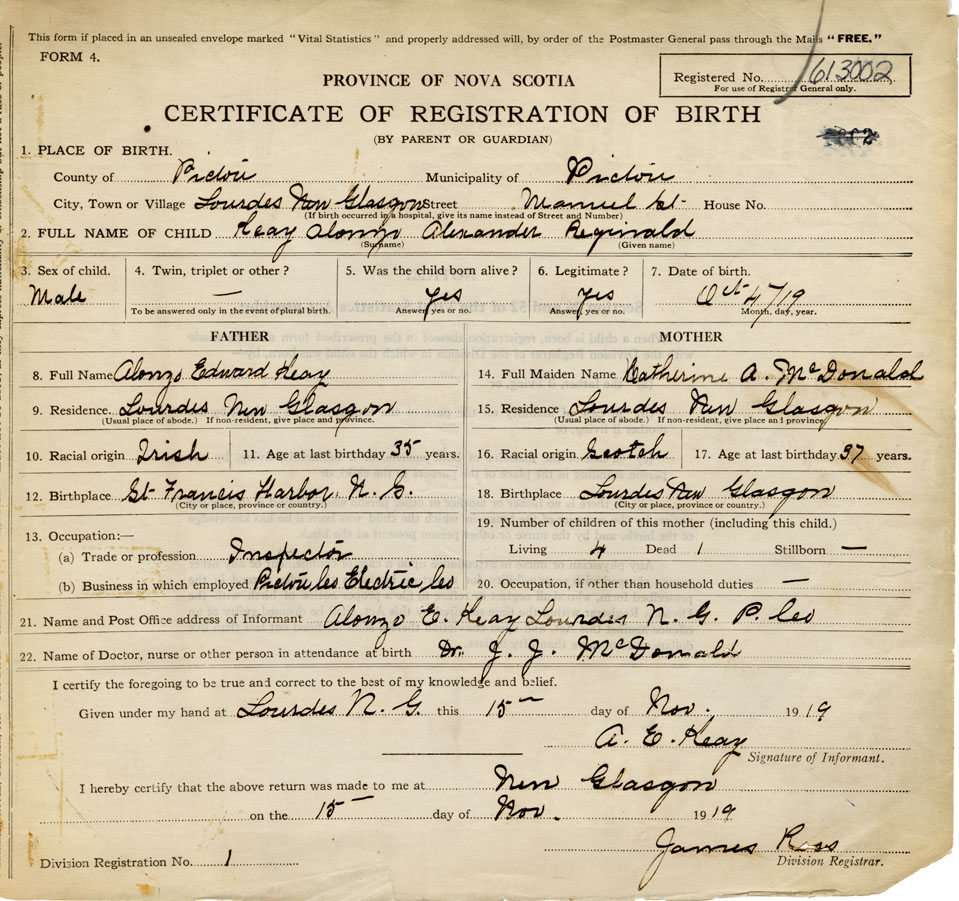 This form if placed in an unsealed envelope marked "Vital Statistics" and properly addressed will, by order of the Postmaster General pass through the Mails "FREE."
FORM 4.
Registered No. 613002
For use of Registrar General only.
PROVINCE OF NOVA SCOTIA
CERTIFICATE OF REGISTRATION OF BIRTH
(BY PARENT OR GUARDIAN)
1. PLACE OF BIRTH.
County of Pictou Municipality of Pictou
City, Town or Village Lourdes New Glasgow Street Manuel St House No.
(If birth occurred in a hospital, give its name instead of Street and Number)
2. FULL NAME OF CHILD Keay Alonzo Alexander Reginald
(Surname) (Given name)
3. Sex of child. 4. Twin, triplet or other? 5. Was the child born alive? 6. Legitimate? 7. Date of birth.
Male — yes yes Oct 4/19
To be answered only in the event of plural birth. Answer yes or no. Answer, yes or no. Month, day, year.
FATHER MOTHER
8. Full Name Alonzo Edward Keay 14. Full Maiden Name Katherine A. McDonald
9. Residence. Lourdes New Glasgow 15. Residence Lourdes New Glasgow
(Usual place of abode.) If non-resident, give place and province. (Usual place of abode.) If non-resident, give place and province.
10. Racial origin Irish 11. Age at last birthday 35 years. 16. Racial origin Scotch 17. Age at last birthday 37 years.
12. Birthplace St Francis Harbor, N. S. 18. Birthplace Lourdes New Glasgow
(City or place, province or country.) (City or place, province or country.)
13. Occupation:— 19. Number of children of this mother (including this child.)
(a) Trade or profession Inspector Living 4 Dead 1 Stillborn —
(b) Business in which employed Pictou Co Electric Co 20. Occupation, if other than household duties —
21. Name and Post Office address of Informant Alonzo E. Keay Lourdes N. G. P. Co
22. Name of Doctor, nurse or other person in attendance at birth Dr. J. J. McDonald
I certify the foregoing to be true and correct to the best of my knowledge and belief.
Given under my hand at Lourdes N. G. this 15 day of Nov. 1919
A. E. Keay
Signature of Informant.
I hereby certify that the above return was made to me at New Glasgow
on the 15 day of Nov. 1919
James Ross
Division Registration No. 1 Division Registrar.